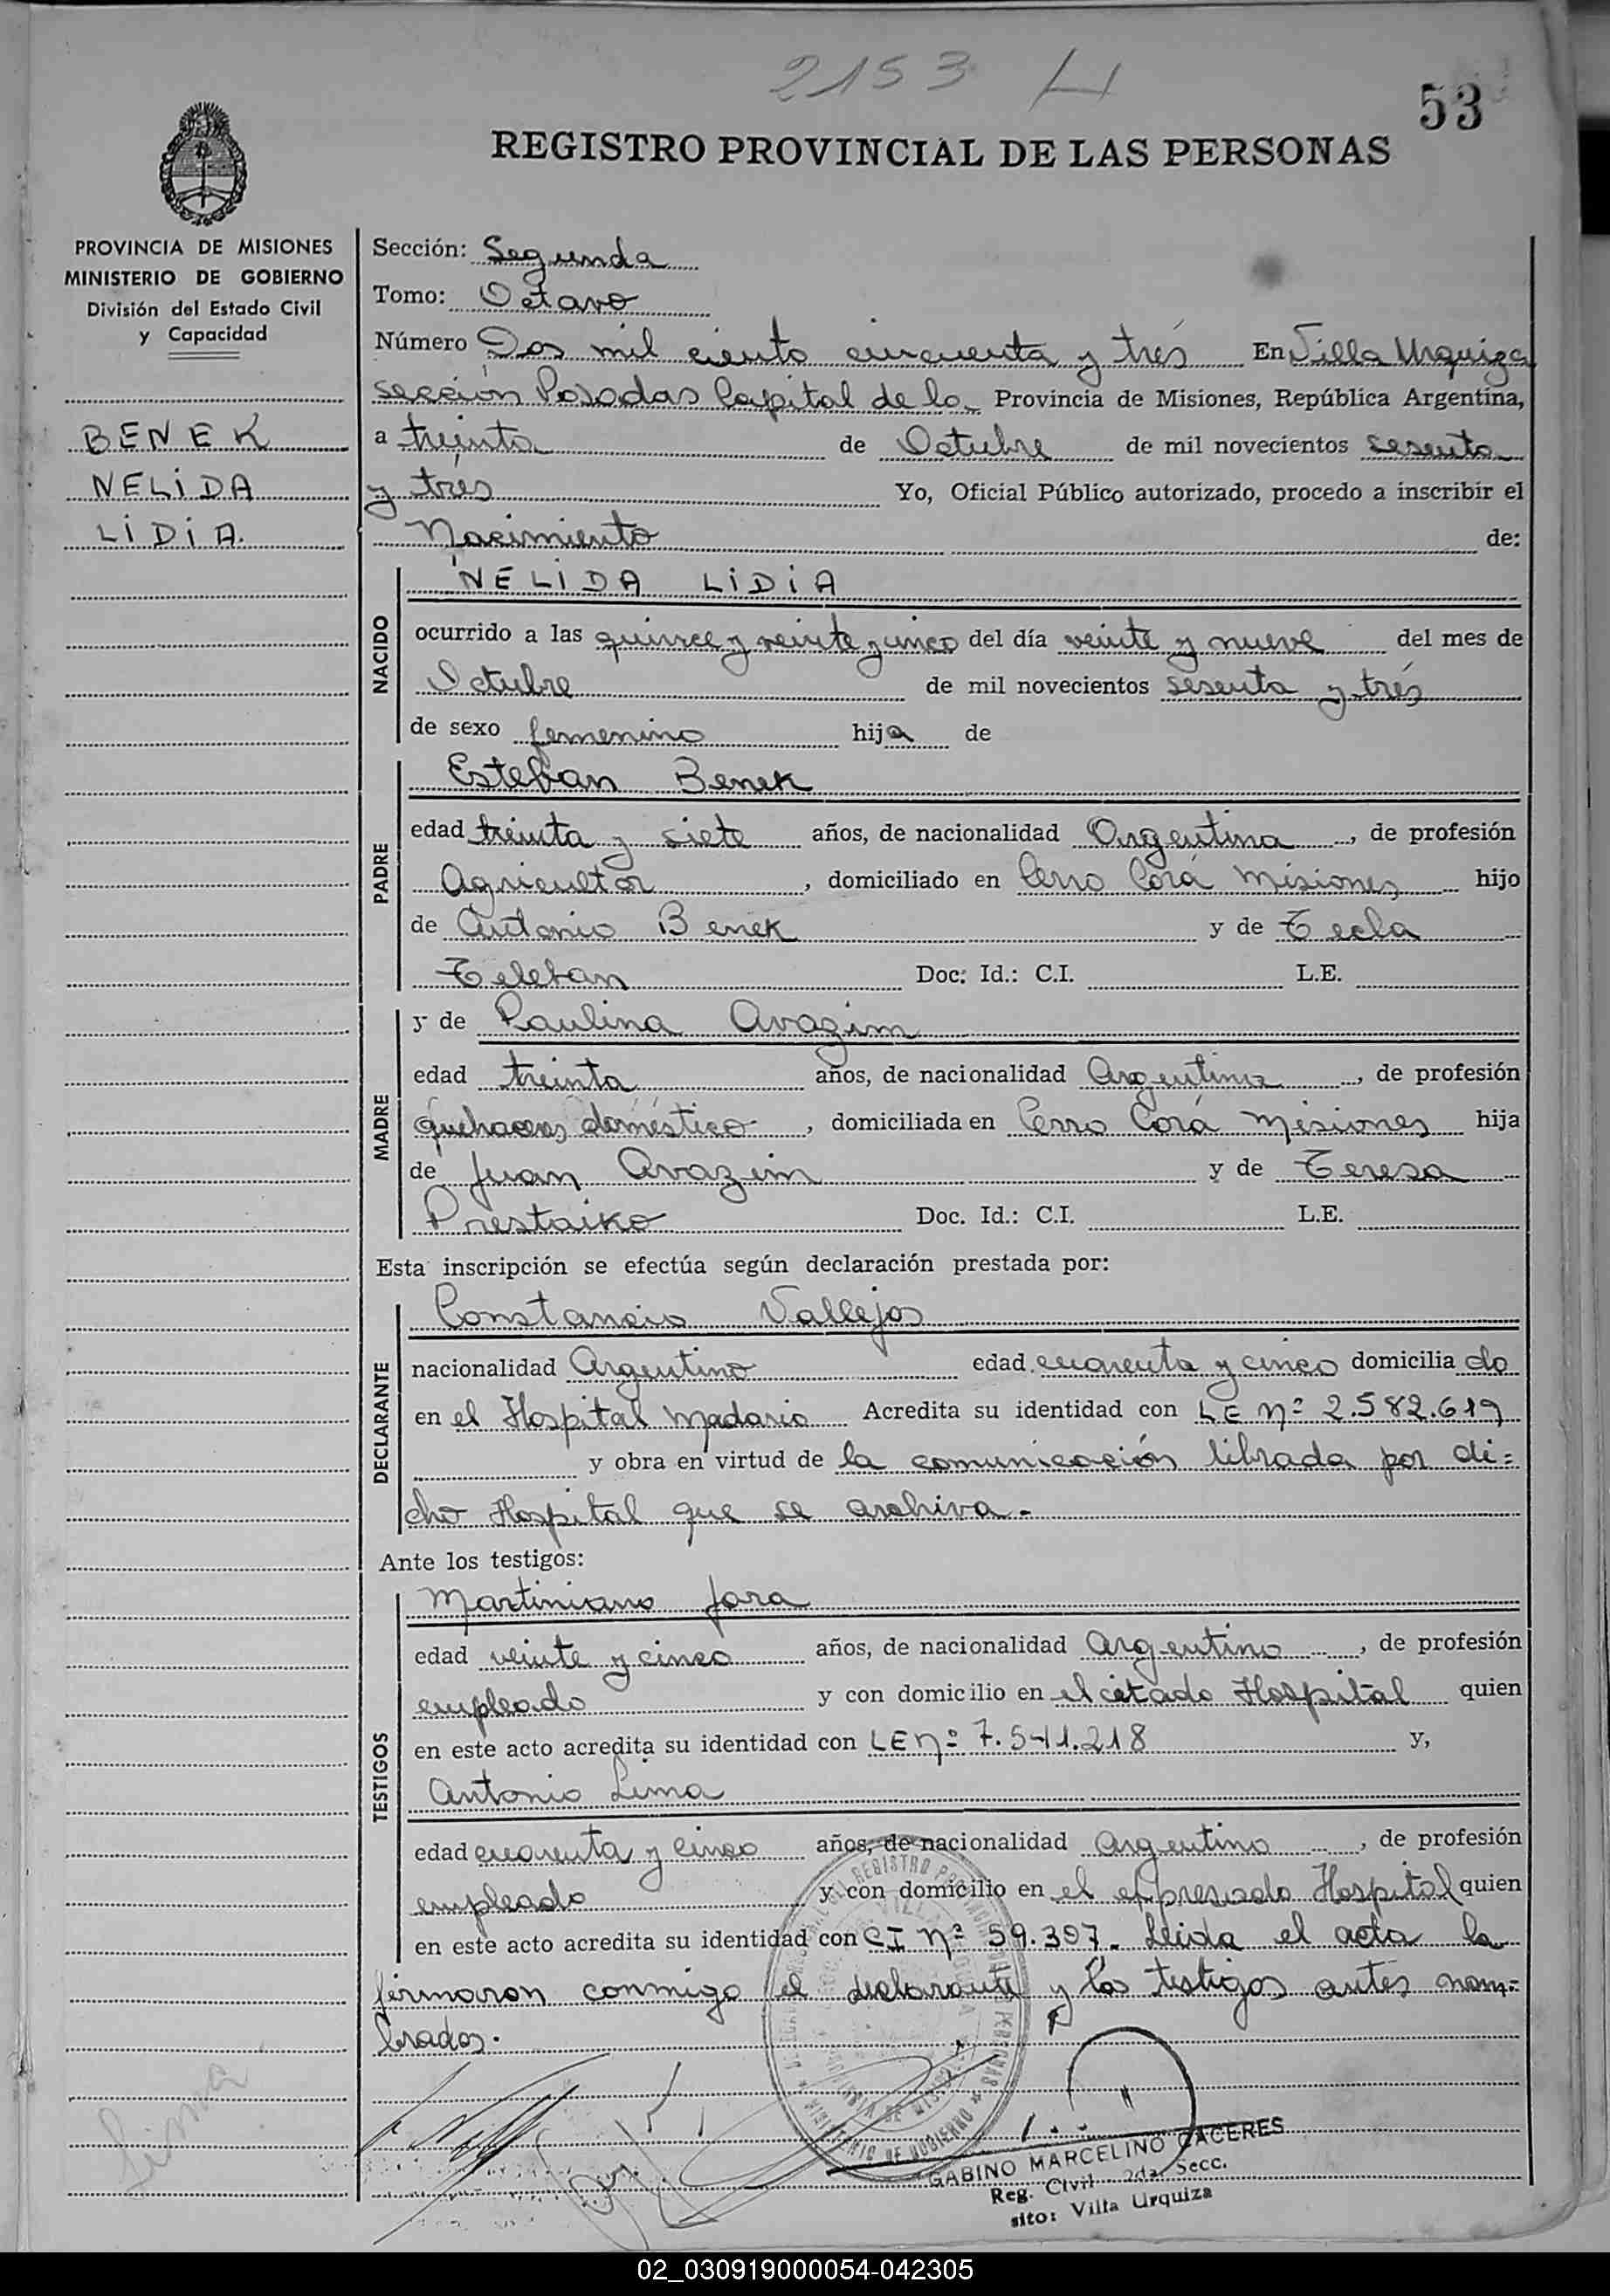 2153 H
53
REGISTRO PROVINCIAL DE LAS PERSONAS
PROVINCIA DE MISIONES
MINISTERIO DE GOBIERNO
División del Estado Civil
y Capacidad
BENEK
NELIDA
LIDIA.
Sección: Segunda
Tomo: Octavo
Número Dos mil ciento cincuenta y trés En Villa Urquiza
sección Posadas Capital de la Provincia de Misiones, República Argentina,
a treinta de Octubre de mil novecientos sesenta
y tres Yo, Oficial Público autorizado, procedo a inscribir el
Nacimiento de:
NACIDO
NELIDA LIDIA
ocurrido a las quince y veinte y cinco del día veinte y nueve del mes de
Octubre de mil novecientos sesenta y trés
de sexo femenino hija de
PADRE
Esteban Benek
edad treinta y siete años, de nacionalidad Argentina, de profesión
Agricultor, domiciliado en Cerro Corá Misiones hijo
de Antonio Benek y de Tecla
Teleban Doc: Id.: C.I. L.E.
MADRE
y de Paulina Avazim
edad treinta años, de nacionalidad Argentina, de profesión
quehaceres doméstico, domiciliada en Cerro Corá Misiones hija
de Juan Avazim y de Teresa
Prestaiko Doc. Id.: C.I. L.E.
Esta inscripción se efectúa según declaración prestada por:
DECLARANTE
Constancio Vallejos
nacionalidad Argentino edad cuarenta y cinco domicilia do
en el Hospital Madaria Acredita su identidad con LE Nº 2.582.619
y obra en virtud de la comunicación librada por di=
cho Hospital que se archiva.-
Ante los testigos:
TESTIGOS
Martiniano Jara
edad veinte y cinco años, de nacionalidad Argentino, de profesión
empleado y con domicilio en el citado Hospital quien
en este acto acredita su identidad con LE nº 7.541.218 y,
Antonio Lima
edad cuarenta y cinco años, de nacionalidad Argentino, de profesión
empleado y con domicilio en el expresado Hospital quien
en este acto acredita su identidad con CI Nº 59.397. Leida el acta la
firmaron conmigo el declarante y los testigos antes nom=
brados.
Lima
GABINO MARCELINO CACERES
Reg. Civil 2da. Secc.
sito: Villa Urquiza
02_030919000054-042305